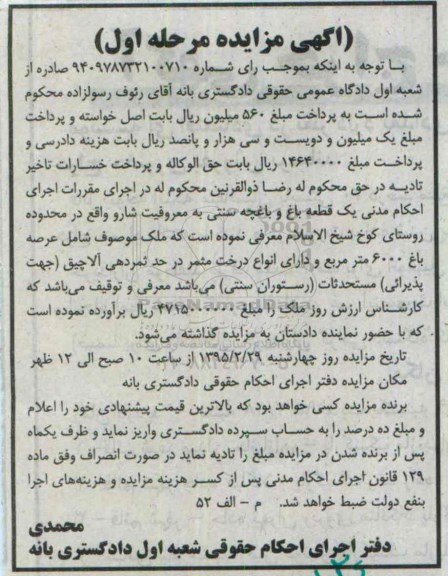 (آگهی مزایده مرحله اول)
با توجه به اینکه بموجب رای شماره ۹۴۰۹۹۷۸۷۳۲۱۰۰۷۱۰ صادره از
شعبه اول دادگاه عمومی حقوقی دادگستری بانه آقای رئوف رسولزاده محکوم
شده است به پرداخت مبلغ ۵۶۰ میلیون ریال بابت اصل خواسته و پرداخت
مبلغ یک میلیون و دویست و سی هزار و پانصد ریال بابت هزینه دادرسی و
پرداخت مبلغ ۱۴۶۴۰۰۰۰ ریال بابت حق الوکاله و پرداخت خسارات تاخیر
تادیه در حق محکوم له رضا ذوالقرنین محکوم له در اجرای مقررات اجرای
احکام مدنی یک قطعه باغ و باغچه سنتی به معروفیت شارو واقع در محدوده
روستای کوخ شیخ الاسلام معرفی نموده است که ملک موصوف شامل عرصه
باغ ۶۰۰۰ متر مربع و دارای انواع درخت مثمر در حد ثمردهی آلاچیق (جهت
پذیرائی) مستحدثات (رستوران سنتی) می‌باشد معرفی و توقیف می‌باشد که
کارشناس ارزش روز ملک را مبلغ ۴۷۱۵۰۰۰۰۰۰ ریال برآورده نموده است
که با حضور نماینده دادستان به مزایده گذاشته می‌شود.
تاریخ مزایده روز چهارشنبه ۱۳۹۵/۲/۲۹ از ساعت ۱۰ صبح الی ۱۲ ظهر
مکان مزایده دفتر اجرای احکام حقوقی دادگستری بانه
برنده مزایده کسی خواهد بود که بالاترین قیمت پیشنهادی خود را اعلام
و مبلغ ده درصد را به حساب سپرده دادگستری واریز نماید و ظرف یکماه
پس از برنده شدن در مزایده مبلغ را تادیه نماید در صورت انصراف وفق ماده
۱۲۹ قانون اجرای احکام مدنی پس از کسر هزینه مزایده و هزینه‌های اجرا
بنفع دولت ضبط خواهد شد. م - الف ۵۲
محمدی
دفتر اجرای احکام حقوقی شعبه اول دادگستری بانه